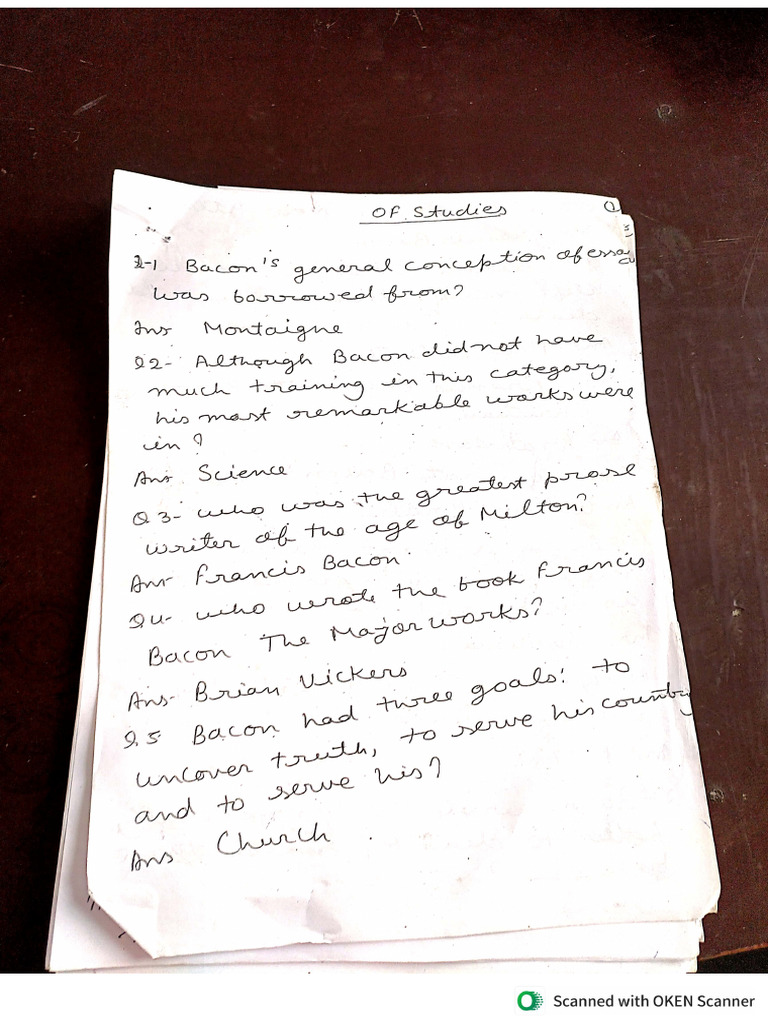 Of Studies
Q-1 Bacon's general conception of essay
was borrowed from?
Ans Montaigne
Q2- Although Bacon did not have
much training in this category,
his most remarkable works were
in?
Ans Science
Q3- who was the greatest prose
writer of the age of Milton?
Ans- Francis Bacon
Q4- who wrote the book Francis
Bacon The Major works?
Ans- Brian Vickers
Q.5 Bacon had three goals: to
uncover truth, to serve his country
and to serve his?
Ans Church
Scanned with OKEN Scanner